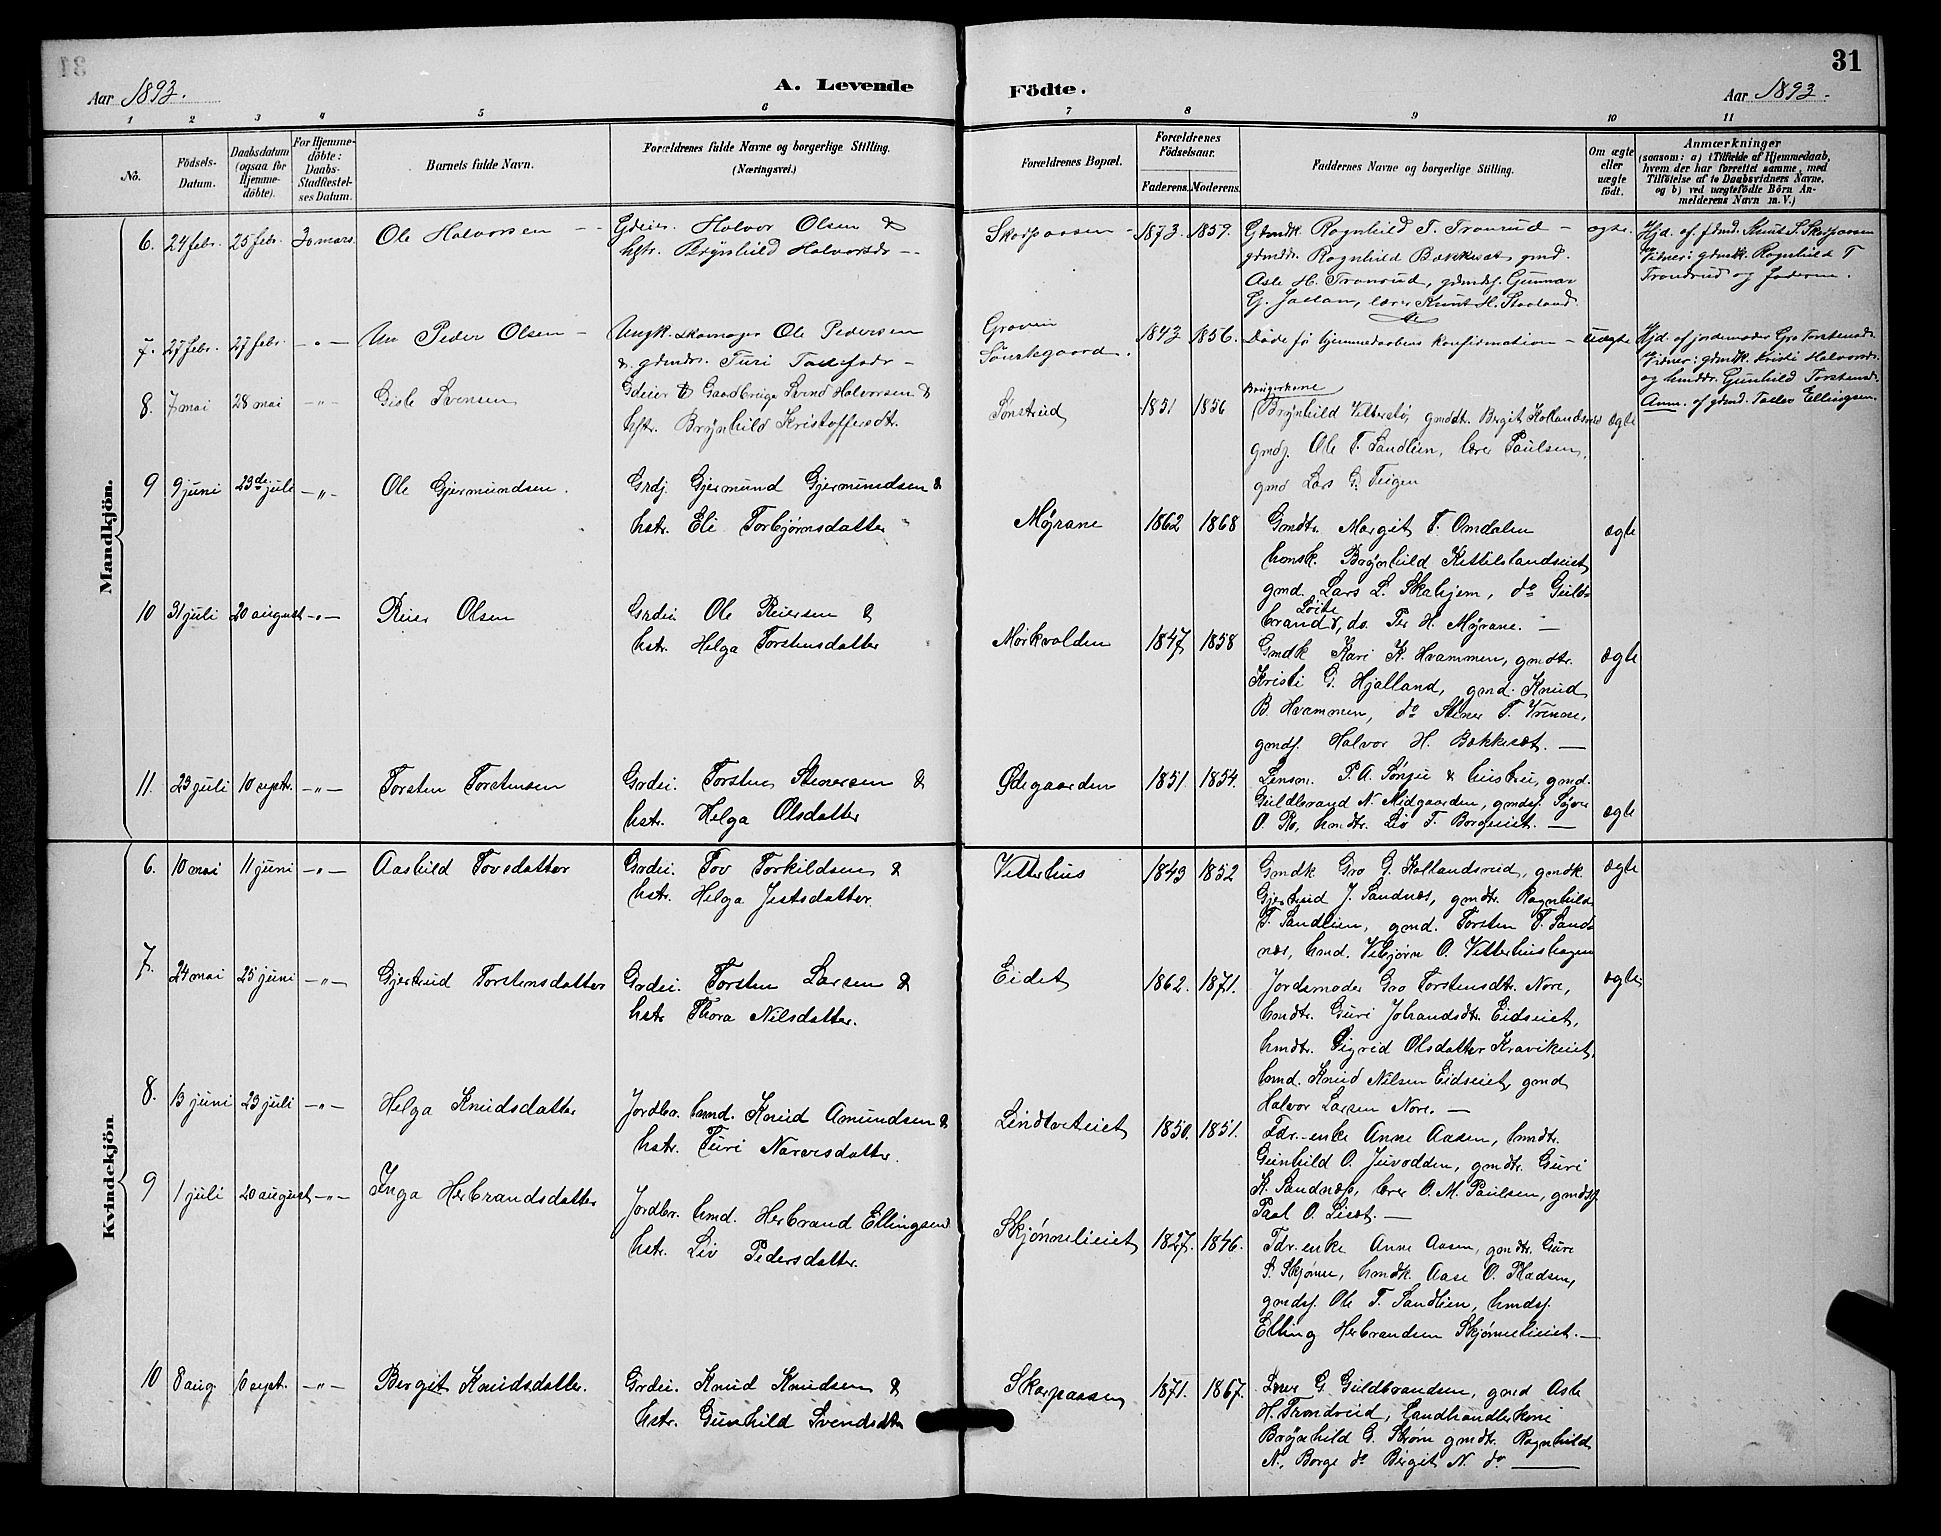 31
Aar 1893.
A. Levende
Födte.
Aar 1893.
1 2 3 4 5 6 7 8 9 10 11
No.
Födsels-
Datum.
Daabsdatum
(ogsaa for
Hjemme-
döbte).
For Hjemme-
döbte:
Daabs-
Stadfæstel-
ses Datum.
Barnets fulde Navn.
Forældrenes fulde Navne og borgerlige Stilling.
(Næringsvei.)
Forældrenes Bopæl.
Forældrenes
Födselsaar.
Faderens. Moderens.
Faddernes Navne og borgerlige Stilling.
Om ægte
eller
uægte
födt.
Anmærkninger
(saasom: a) i Tilfælde af Hjemmedaab,
hvem der har forrettet samme, med
Tilföielse af to Daabsvidners Navne,
og b) ved uægtefödte Börn An-
melderens Navn m. V.)
Mandkjön.
6. 24 febr. 25 febr. 30 mars. Ole Halvorsen - -
Gdeier. Halvor Olsen &
hstr. Brynhild Halvorsdr - -
Skarpaasen - 1873. 1859.
Gdmdk. Ragnhild T. Tronrud -
gdmddr. Ragnhild Bækkeset gmd.
Asle H. Tronrud, gdmds. Gunnar
G. Jallan, lærer Knut H. Skarland
ægte.
Hjd. af fdmd. Knut S. Skarpaasen
Vidner: gdmdk. Ragnhild T
Trondrud og faderen.
7. 27 febr. 27 febr. - " - Un Peder Olsen -
Ungk. skomager Ole Pedersen
& gdmdr. Turi Tollefsdr -
Groven
Sønstegaard. 1843 1856.
Døde før hjemmedaabens konfirmation -
Uægte
Hjd. af jordemoder Gro Torstensdr.
Vidner: gdmdk. Kristi Halvorsdr.
og hmddr. Gunhild Torstensdr.
Anm. af gdmd. Tollev Ellingsen.
8. 7 mai 28 mai - " - Gisle Svensen
Gdeier & Gaardbruger Svend Halvorsen &
hstr. Brynhild Kristoffersdtr.
Sønstrud 1851 1856
Brugerkone
Brynhild Vetterstø, gmddtr. Bergit Kollandsrud
gmdsj. Ole T. Sandlien, lærer Paulsen,
gmd Lars G. Teigen
ægte
9 9 juni 23de juli - " - Ole Gjermundsen.
Grdj. Gjermund Gjermundsen &
hstr. Eli Torbjørnsdatter
Myrane 1862 1868
Gmdtr. Margit T. Omdalen
hmsk. Brynhild Kittilslandseiet
gmd. Lars L. Skahjem, do Guld-
brand Løite, do. Per H. Myrane. -
ægte
10 31 juli 20 august - " - Reier Olsen
Grdei. Ole Reiersen &
hstr. Helga Torstensdatter
Mørkvolden 1847 1858
Gmdk Kari K. Hvammen, gmdtr.
Kristi G. Hjalland, gmd. Knud
B. Hvammen, do Stener T. Vrenne,
gmdsj. Halvor H. Bækkeset. -
ægte
11. 23 juli 10 sept. - " - Torsten Torstensen
Grdei. Torsten Stenersen &
hstr. Helga Olsdatter
Ødegaarden 1851. 1854.
Lensm. P. A. Sønju & hustru, gmd.
Guldbrand N. Midgaarden, gmdsj. Syver
O. Ro, hmdtr. Liv T. Borgeiet. -
ægte
Kvindekjön
6. 10 mai 11 juni - " - Aashild Tovsdatter
Grdei. Tov Torkildsen &
hstr. Helga Jestsdatter.
Vetterhus 1843 1852
Gmdk Gro G. Kollandsrud, gmdk
Gjertrud J. Sandnæs, gmdtr. Ragnhild
T. Sandlien, gmd. Torsten T. Sand-
næs, hmd. Vebjørn O. Vetterhushagen
ægte
7. 24 mai 25 juni - " - Gjertrud Torstensdatter
Grdei. Torsten Larsen &
hstr. Thora Nilsdatter.
Eidet 1862. 1871.
Jordemoder Gro Torstensdtr. Nore,
hmdtr. Guri Johansdtr. Eidseiet,
hmdtr. Sigrid Olsdatter Kravikeiet,
hmd. Knud Nilsen Eidseiet, gmd
Halvor Larsen Nore. -
ægte
8. 13 juni 23 juli - " - Helga Knudsdatter
Jordbr. hmd. Knud Amundsen &
hstr. Turi Narvesdatter.
Lindtveteiet 1850. 1851.
Fdr.-enke Anne Aasen, hmdtr.
Gunhild O. Juvodden, gmdtr. Guri
K. Sandnæs, lærer O. M. Paulsen, gmdsj
Paal O. Liset. -
9 1 juli 20 august - " - Inga Herbrandsdatter
Jordbr. hmd. Herbrand Ellingsen
hstr. Liv Pedersdatter.
Skjønnelieiet 1827. 1846.
Fdr.enke Anne Aasen, gmdtr. Guri
S. Skjønne, hmdk. Aase O. Pladsen,
gmdsj. Ole T. Sandlien, hmdsj.
Elling Herbrandsen Skjønnelieiet. -
10 8 aug. 10 sept. - " - Bergit Knudsdatter.
Grdei. Knud Knudsen &
hstr. Gunhild Svendsdtr
Skarpaasen 1871. 1867.
Lærer G. Guldbrandsen, gmd Asle
H. Trondrud, Landhandlerkone
Brynhild G. Strøm gmdtr. Ragnhild
N. Borge do Bergit N. do